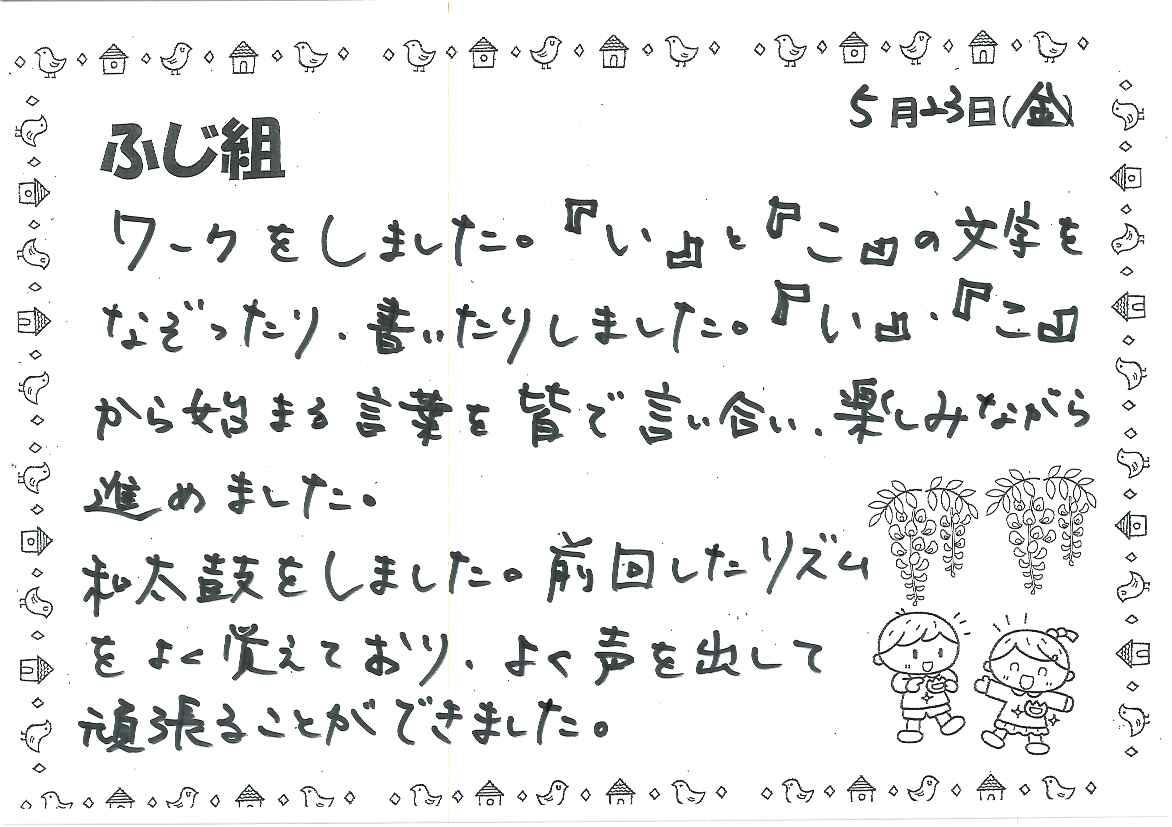 5月23日(金)
ふじ組
ワークをしました。『い』と『こ』の文字を
なぞったり、書いたりしました。『い』、『こ』
から始まる言葉を皆で言い合い、楽しみながら
進めました。
和太鼓をしました。前回したリズム
をよく覚えており、よく声を出して
頑張ることができました。